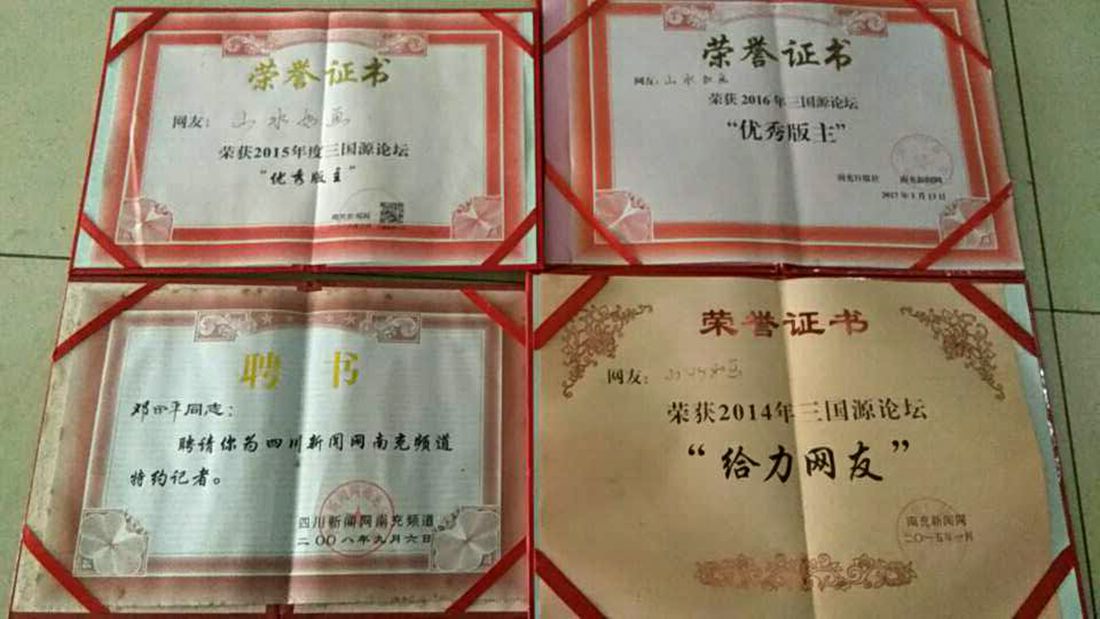 荣誉证书
网友：山水如画
荣获2015年度三国源论坛
“优秀版主”
南充新闻网
荣誉证书
网友：山水如画
荣获2016年三国源论坛
“优秀版主”
南充日报社 南充新闻网
2017年1月13日
聘书
邓四平同志：
聘请你为四川新闻网南充频道
特约记者。
四川新闻网南充频道
二〇〇八年九月六日
荣誉证书
网友：山水如画
荣获2014年三国源论坛
“给力网友”
南充新闻网
二〇一五年一月